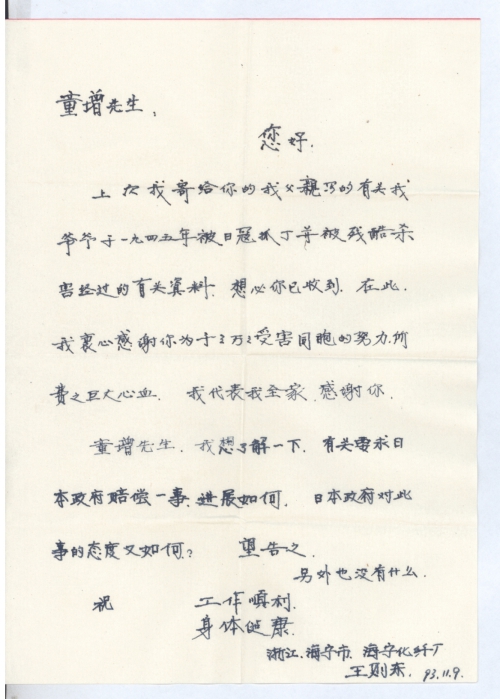 童增先生：
您好.
上次我寄给你的我父親写的有关我
爷爷于一九四五年被日寇抓丁并被残酷杀
害经过的有关资料. 想必你已收到. 在此.
我衷心感谢你为千千万万受害同胞的努力所
费之巨大心血. 我代表我全家. 感谢你.
童增先生. 我想了解一下. 有关要求日
本政府赔偿一事. 进展如何. 日本政府对此
事的态度又如何？ 望告之.
另外也没有什么.
祝 工作顺利.
身体健康.
浙江. 海宁市. 海宁化纤厂
王则东. 93.11.9.